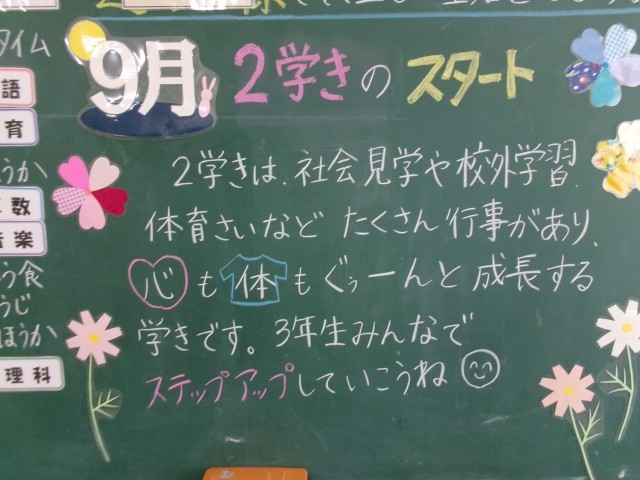 9月 2学きの スタート
2学きは、社会見学や校外学習、
体育さいなど たくさん行事があり、
心も体もぐぅーんと成長する
学きです。3年生みんなで
ステップアップしていこうね
タイム
語
育
うか
数
音楽
う食
うじ
ほうか
理科